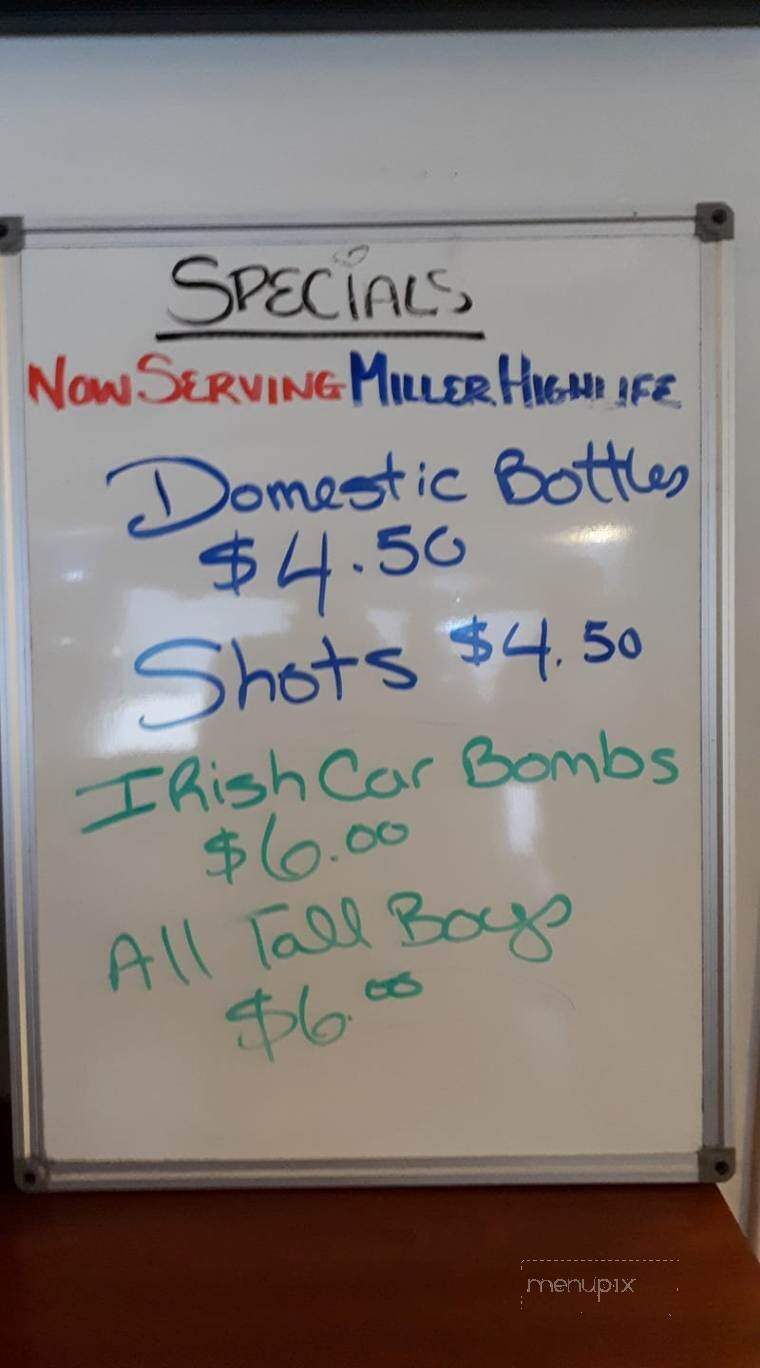 SPECIALS
NOW SERVING MILLER HIGHLIFE
Domestic Bottles
$4.50
Shots $4.50
IRish Car Bombs
$6.00
All Tall Boys
$6.00
menupix